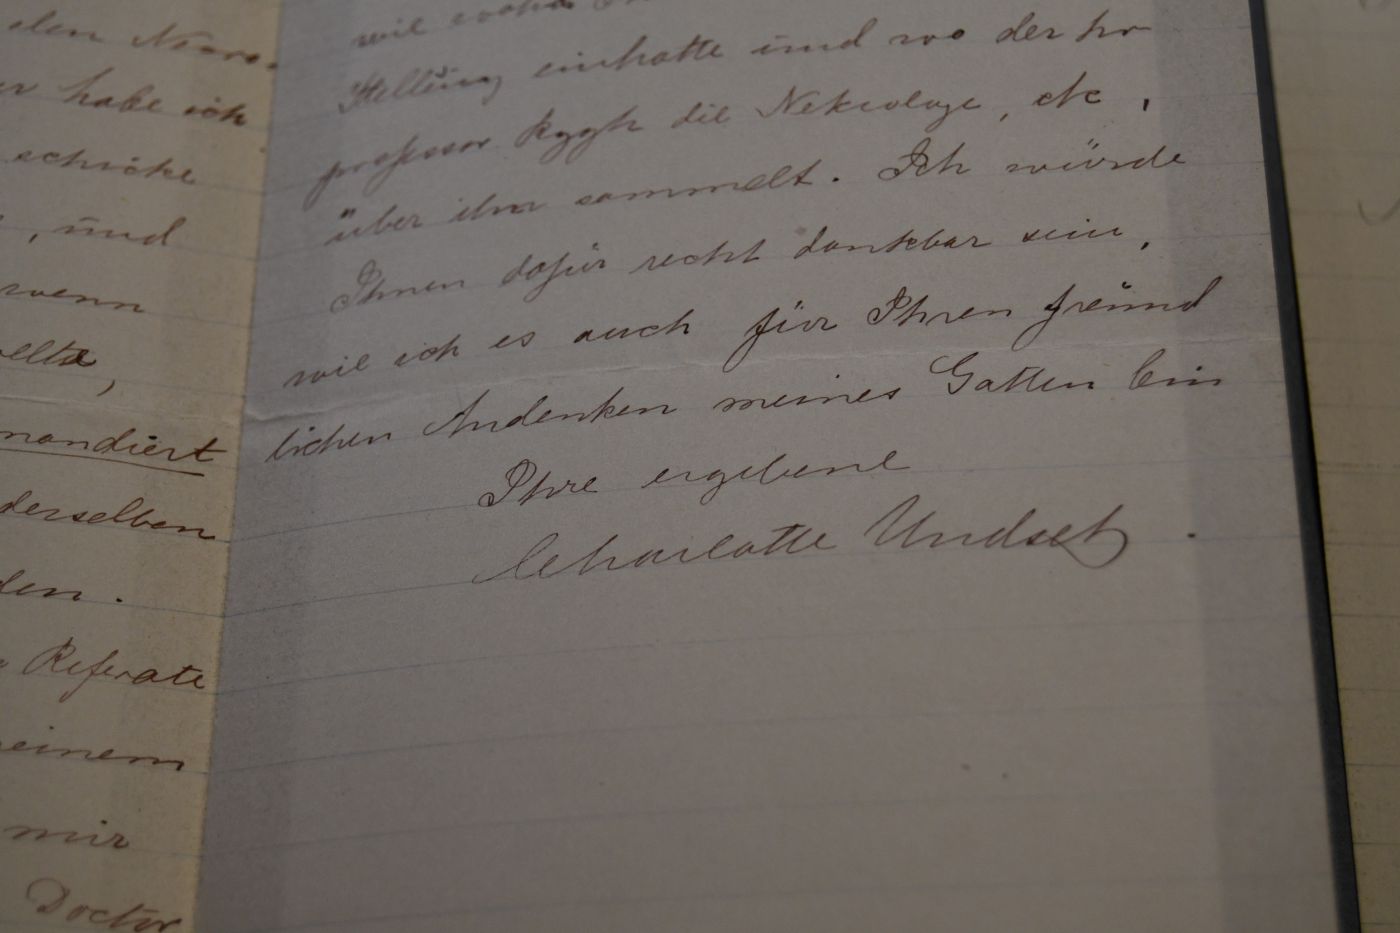 den
er habe ich
schicke
, und
wenn
mandiert
derselben
den.
Referate
einem
mir
Doctor
wie
Stellung einhatte und wo der Pro
professor Rygh die Nekrologe, etc,
über ihn sammelt. Ich würde
Ihnen dafür recht dankbar sein,
wie ich es auch für Ihren freund
lichen Andenken meines Gatten bin
Ihre ergebene
Charlotte Undset.